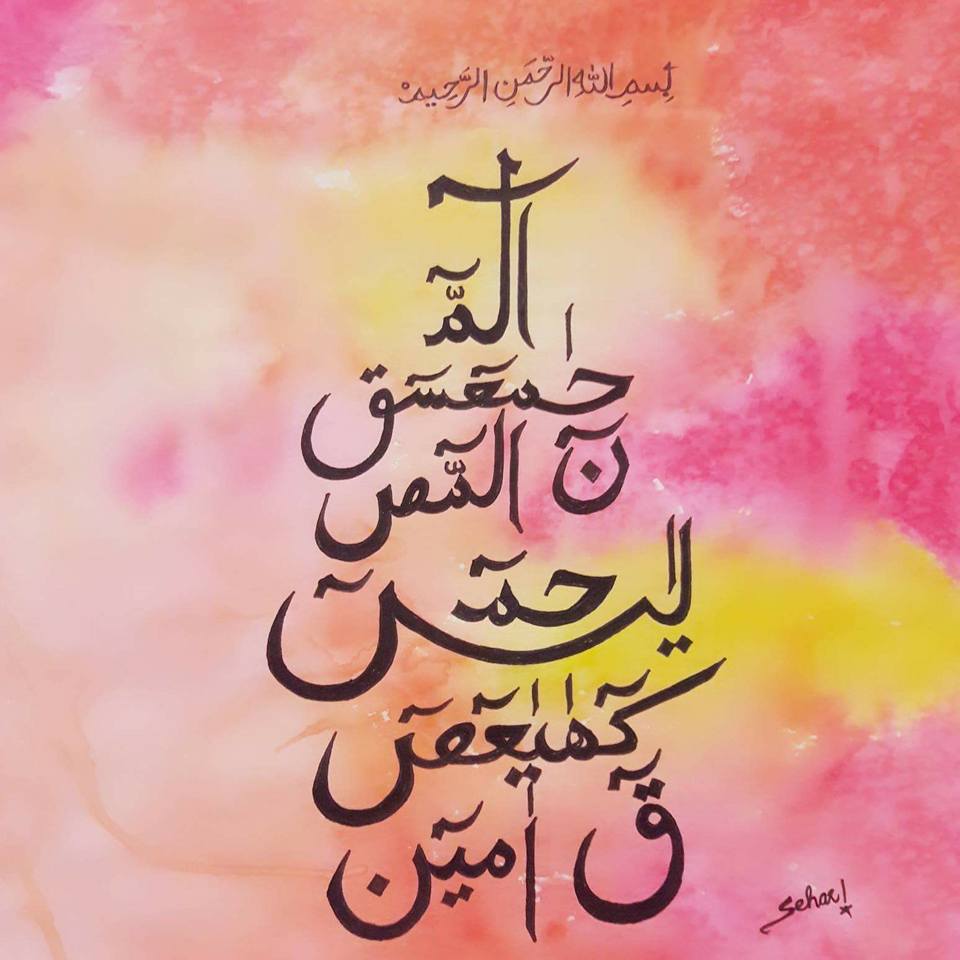 بِسمِ اللهِ الرَّحمَنِ الرَّحِيم
الٓمّٓ
حٰمٓعٓسٓق
نٓ الٓمّٓصٓ
يٰسٓ حمٓ
كٓهٰيٰعٓصٓ
قٓ اٰميٓن
Sehar!